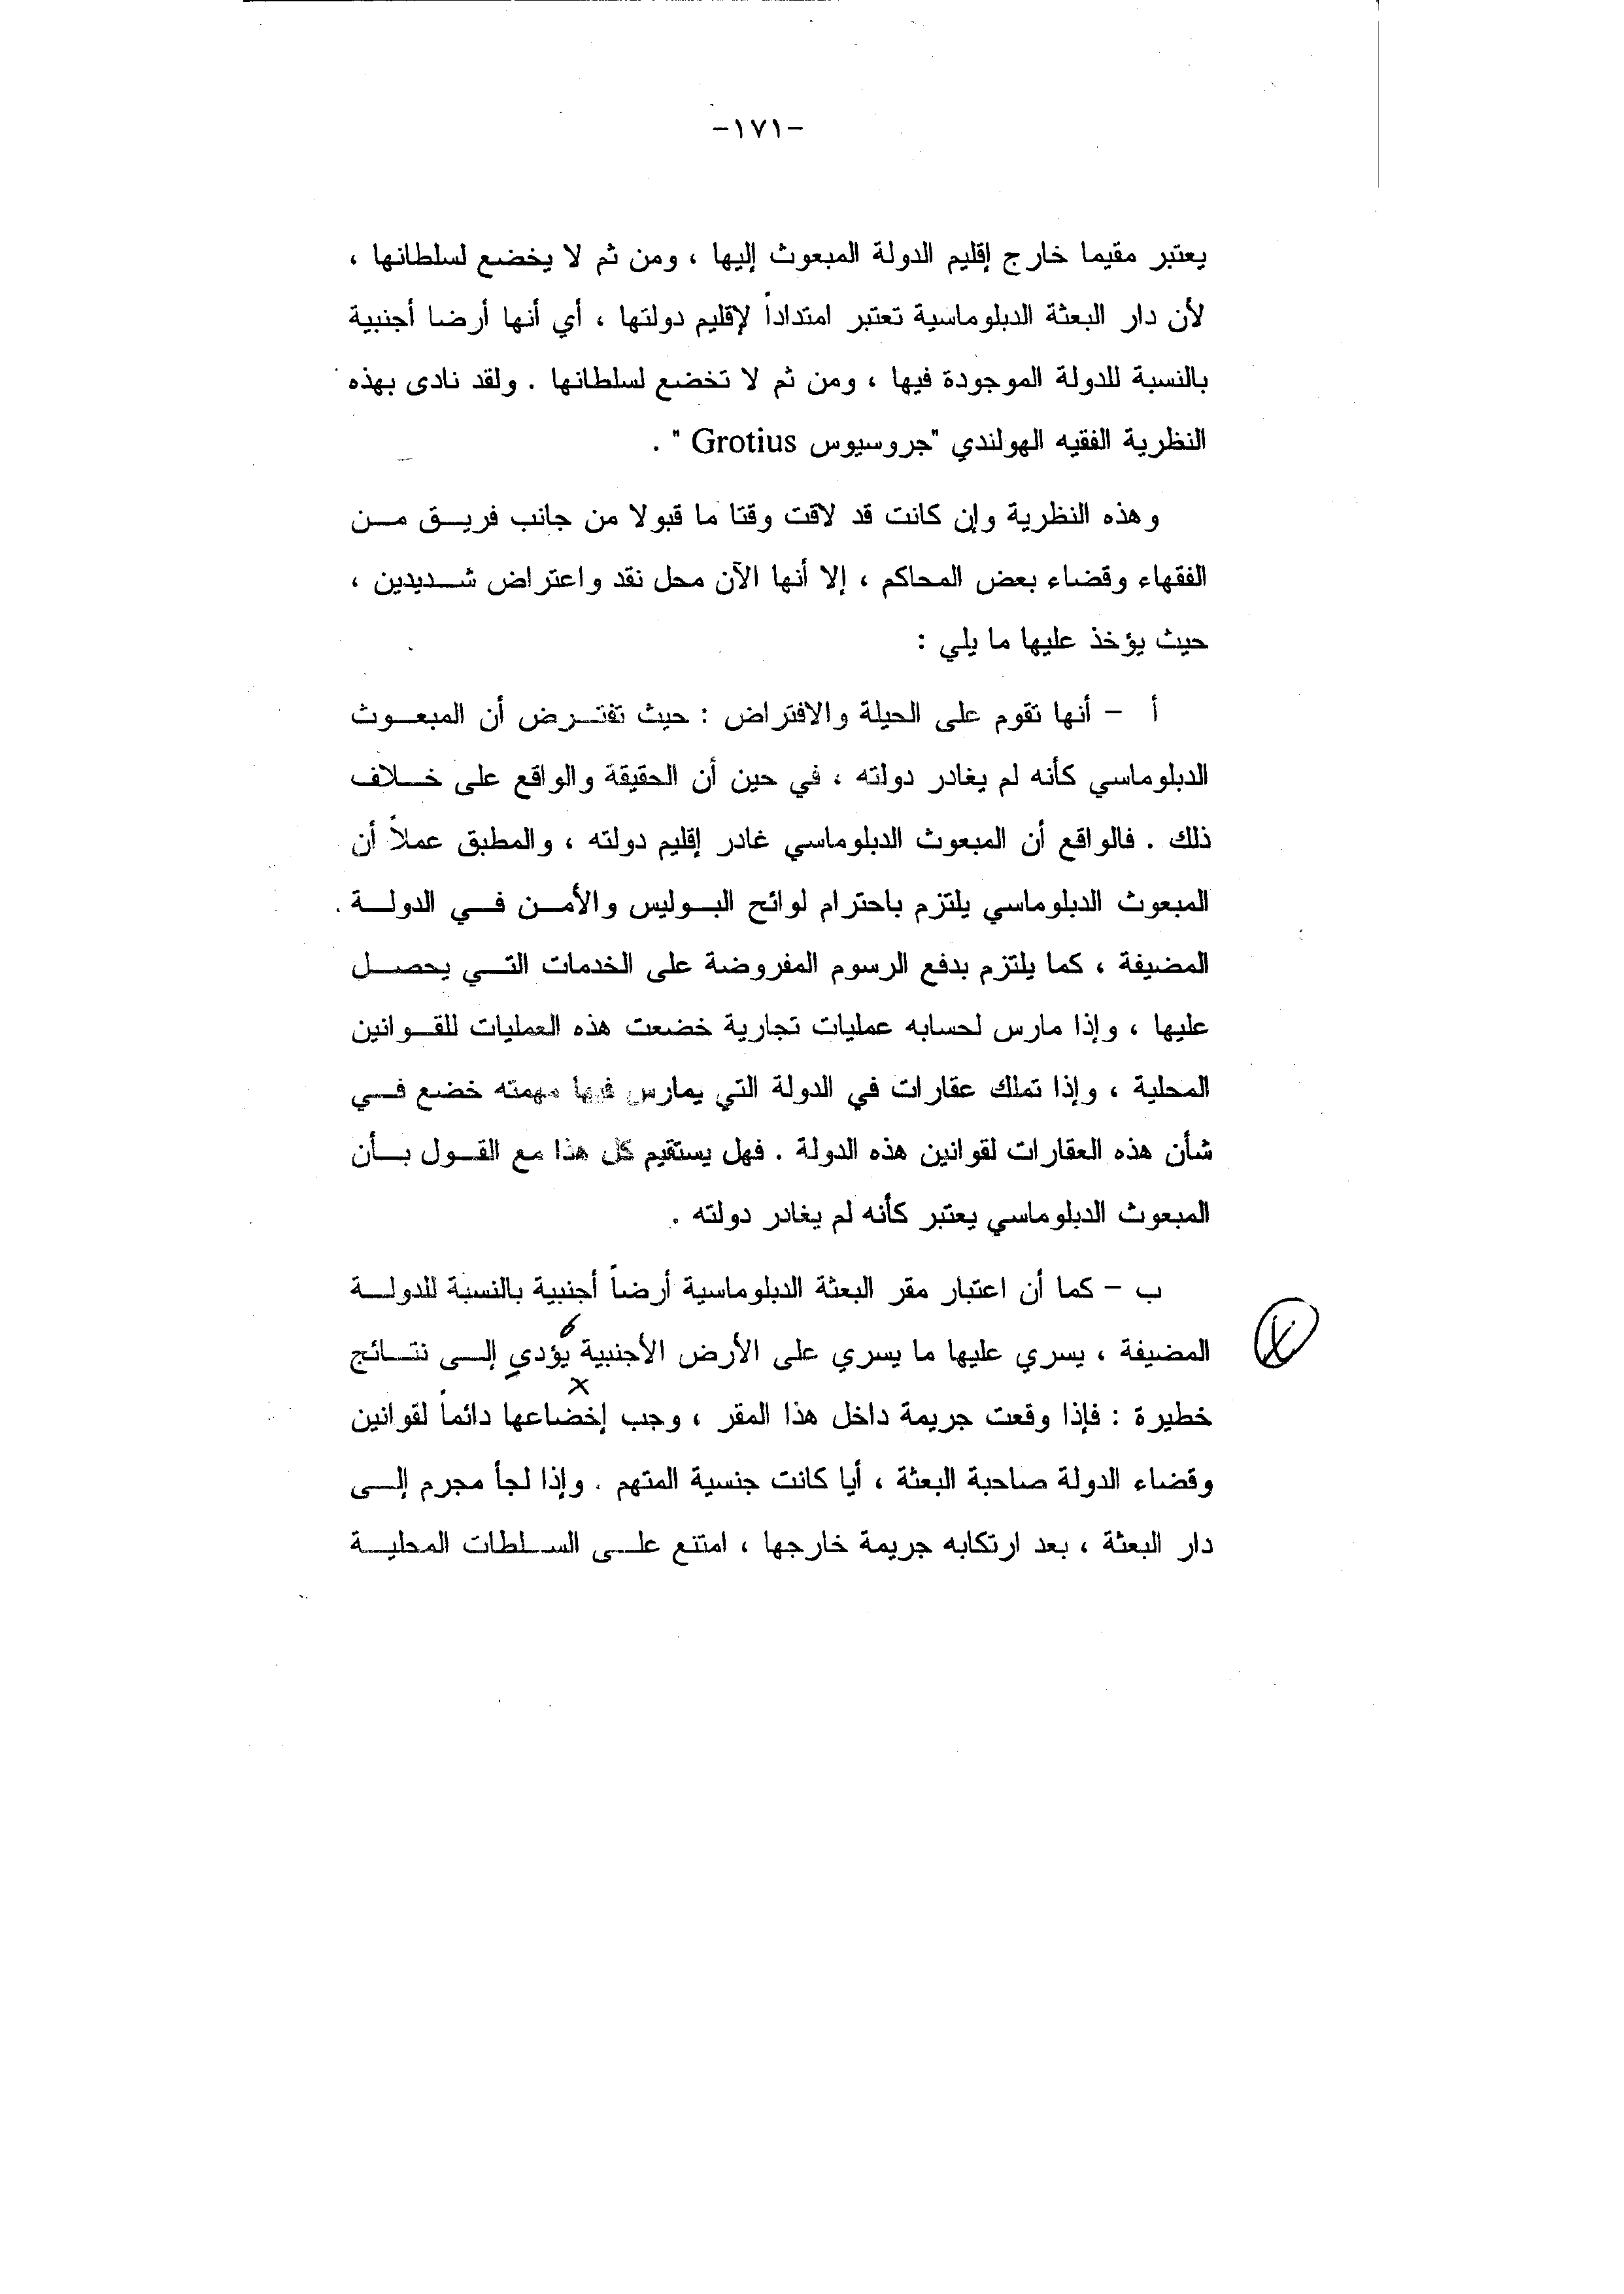 -١٧١-
يعتبر مقيما خارج إقليم الدولة المبعوث إليها ، ومن ثم لا يخضع لسلطانها ،
لأن دار البعثة الدبلوماسية تعتبر امتداداً لإقليم دولتها ، أي أنها أرضا أجنبية
بالنسبة للدولة الموجودة فيها ، ومن ثم لا تخضع لسلطانها . ولقد نادى بهذه
النظرية الفقيه الهولندي "جروسيوس Grotius " .
وهذه النظرية وإن كانت قد لاقت وقتا ما قبولا من جانب فريق من
الفقهاء وقضاء بعض المحاكم ، إلا أنها الآن محل نقد واعتراض شديدين ،
حيث يؤخذ عليها ما يلي :
أ - أنها تقوم على الحيلة والافتراض : حيث تفترض أن المبعوث
الدبلوماسي كأنه لم يغادر دولته ، في حين أن الحقيقة والواقع على خلاف
ذلك . فالواقع أن المبعوث الدبلوماسي غادر إقليم دولته ، والمطبق عملاً أن
المبعوث الدبلوماسي يلتزم باحترام لوائح البوليس والأمن في الدولة
المضيفة ، كما يلتزم بدفع الرسوم المفروضة على الخدمات التي يحصل
عليها ، وإذا مارس لحسابه عمليات تجارية خضعت هذه العمليات للقوانين
المحلية ، وإذا تملك عقارات في الدولة التي يمارس فيها مهمته خضع في
شأن هذه العقارات لقوانين هذه الدولة . فهل يستقيم كل هذا مع القول بأن
المبعوث الدبلوماسي يعتبر كأنه لم يغادر دولته .
ب - كما أن اعتبار مقر البعثة الدبلوماسية أرضاً أجنبية بالنسبة للدولة
المضيفة ، يسري عليها ما يسري على الأرض الأجنبية يؤدي إلى نتائج
خطيرة : فإذا وقعت جريمة داخل هذا المقر ، وجب إخضاعها دائماً لقوانين
وقضاء الدولة صاحبة البعثة ، أيا كانت جنسية المتهم . وإذا لجأ مجرم إلى
دار البعثة ، بعد ارتكابه جريمة خارجها ، امتنع على السلطات المحلية